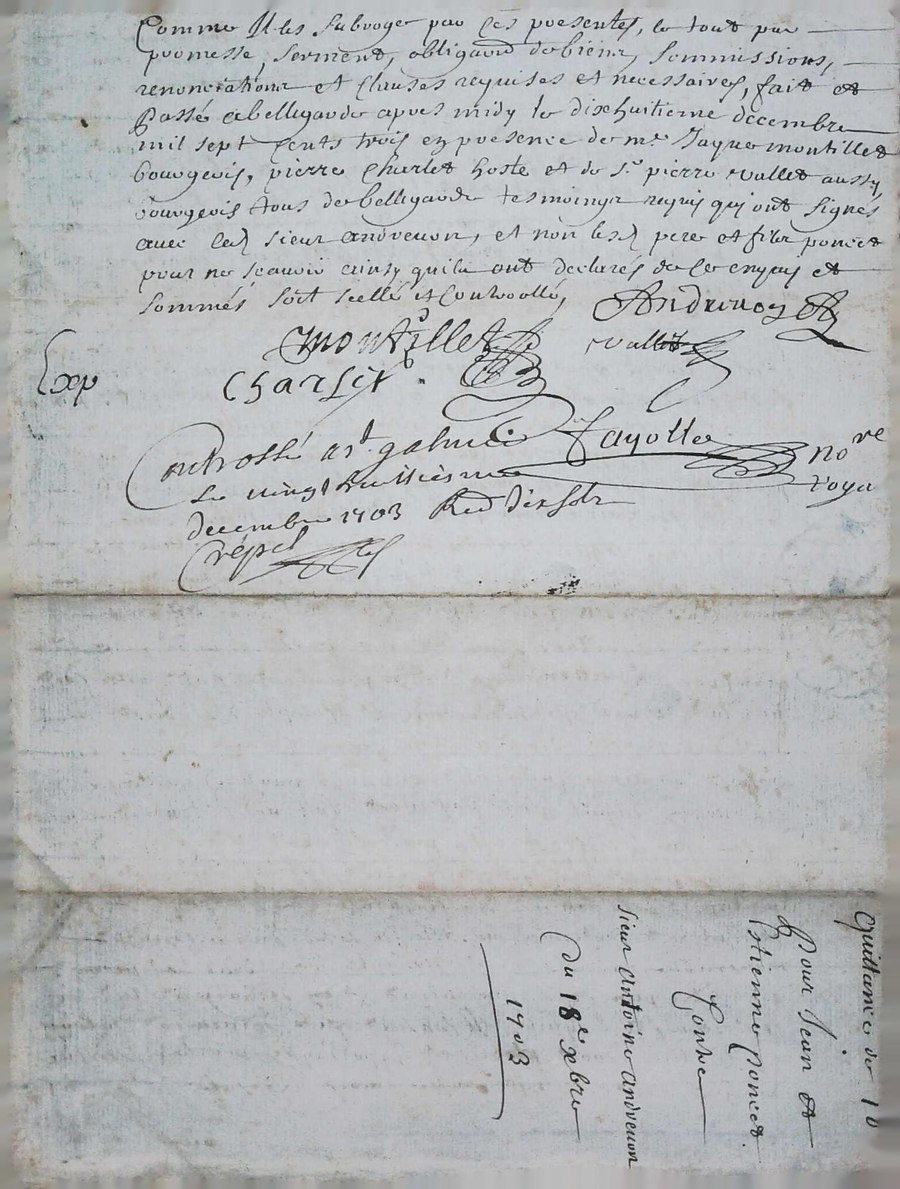 Comme Il les subroge par ces presentes, le tout par
promesse, serment, obligaōn de biens, sommissions,
renonciations et clauses requises et necessaires, fait et
Passé a bellegarde apres midy le dixhuitieme decembre
mil sept cents trois en presence de mᵉ Jaque montillet
bourgeois, pierre Charlet hoste et de sʳ pierre vallet aussy
bourgeois tous de bellegarde tesmoings requis qui ont signés
avec led sieur andrevon, et non lesd pere et fils poncet
pour ne scavoir ainsy quils ont declarés de ce enquis et
sommés soit scellé et Controollé,
Andrevon
montillet
vallet
Exp
Charlet
Fayolle noʳᵉ
royal
Controllé a sᵗ galmier
Le vingt huitiesme
decembre 1703 Red dix sols
Crépet
Quittance de 10
Pour Jean et
Estienne poncet.
Contre
sieur antoine andrevon
Du 18ᵉ xbre
1703